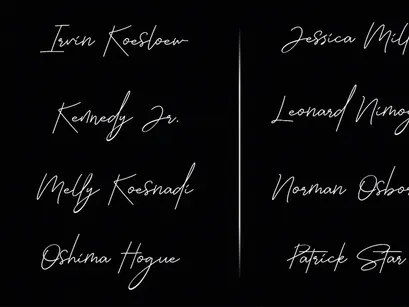 Irvin Koesloew
Kennedy Jr.
Melly Koesnadi
Oshima Hogue
Jessica Mill
Leonard Nimo
Norman Osbor
Patrick Star